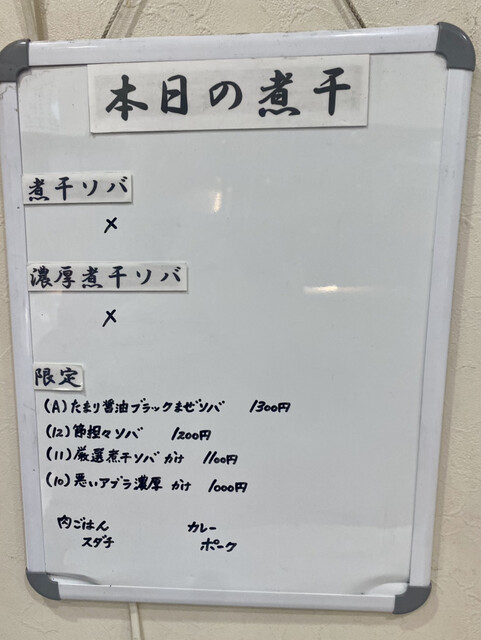 本日の煮干
煮干ソバ
×
濃厚煮干ソバ
×
限定
(A)たまり醤油ブラックまぜソバ 1300円
(12)節担々ソバ 1200円
(11)厳選煮干ソバ かけ 1100円
(10)悪いアブラ濃厚 かけ 1000円
肉ごはん カレー
スダチ ポーク